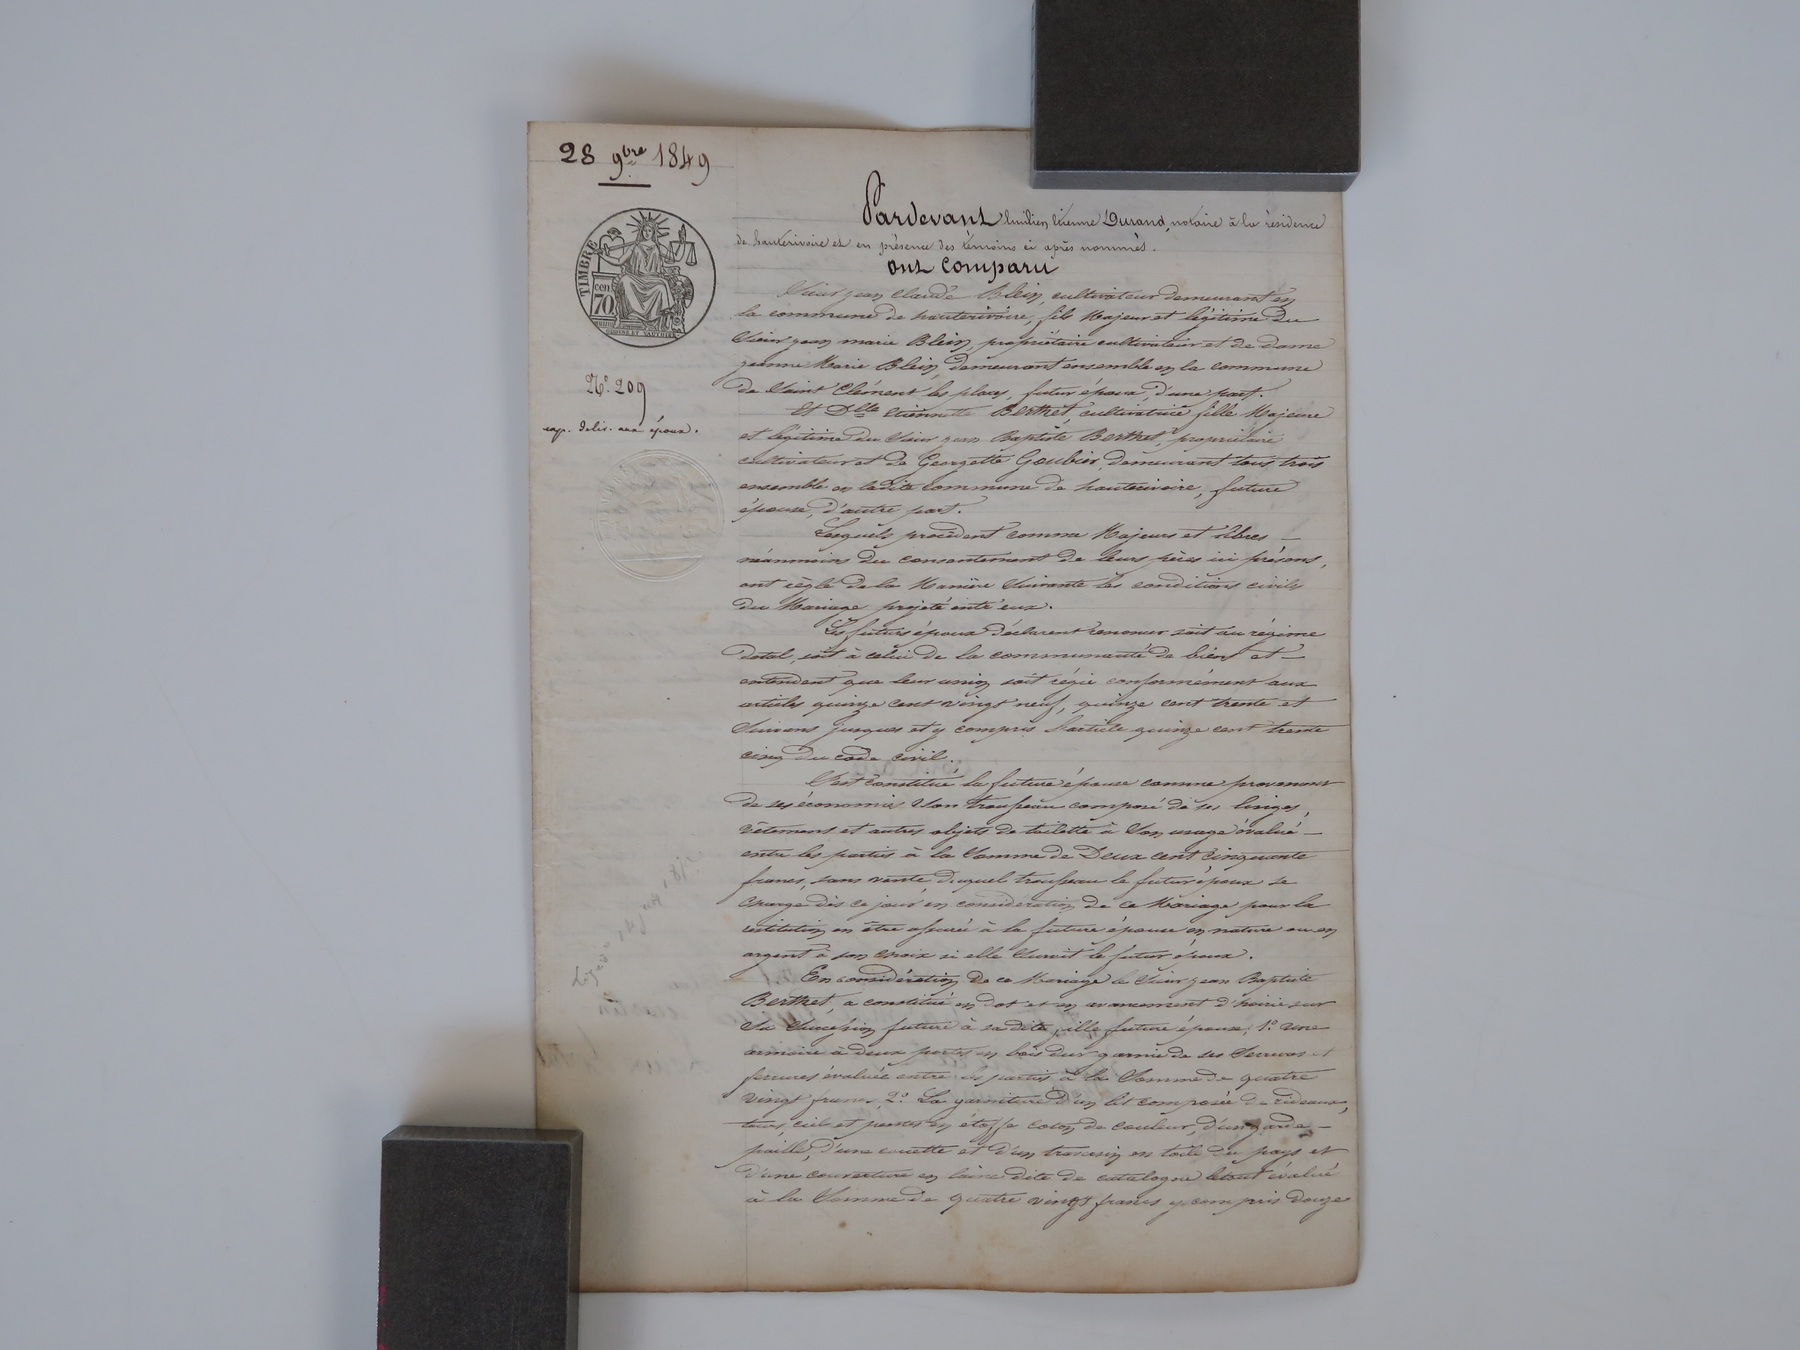 28 9bre 1849
TIMBRE
cen
70
N° 209
exp. déliv. aux époux.
Pardevant Etienne Durand, notaire à la résidence
de hauterivoire et en présence des témoins ci après nommés.
ont comparu
Sieur jean claude Blein, cultivateur demeurant en
la commune de hauterivoire, fils Majeur et légitime du
Sieur jean marie Blein, propriétaire cultivateur et de dame
jeanne Marie Blein, demeurant ensemble en la commune
de Saint Clément les places, futur époux, d'une part.
Et Dlle Etiennette Berthet, cultivatrice fille Majeure
et légitime du Sieur jean Baptiste Berthet, propriétaire
cultivateur et de Georgette Goubier, demeurant tous trois
ensemble en ladite commune de hauterivoire, future
épouse, d'autre part.
Lesquels procédent comme Majeurs et libres —
néanmoins du consentement de leurs pères ici présens,
ont règlé de la Manière Suivante les conditions civils
du Mariage projeté entr'eux.
Les futurs époux déclarent renoncer soit au régime
dotal, soit à celui de la communauté de biens et —
entendent que leur union soit régie conformément aux
articles quinze cent vingt neuf, quinze cent trente et
Suivans jusques et y compris l'article quinze cent trente
cinq du code civil.
S'est constitué la future épouse comme provenant
de ses économies Son trousseau composé de ses linges,
vêtemens et autres objets de toilette à Son usage évalué —
entre les parties à la Somme de Deux cent cinquante
francs, sans vente duquel trousseau le futur époux se
charge dès ce jour en considération de ce Mariage pour la
restitution en être assurée à la future épouse en nature ou en
argent à son choix si elle Survit le futur époux.
En considération de ce Mariage le Sieur jean Baptiste
Berthet, a constitué en dot et en avancement d'hoirie sur
Sa Succession future à sa dite fille future épouse, 1° une
armoire à deux portes en bois dur garnie de ses Serrures et
ferrures évaluée entre les parties à la Somme de quatre
vingt francs, 2° La garniture d'un lit composée de rideaux,
tours, ciel et pentes en étoffe coton de couleur, d'un garde —
paille, d'une couette et d'un traversin en toile du pays et
d'une couverture en laine dite de catalogne letout évalué
à la Somme de quatre vingt francs y compris douze